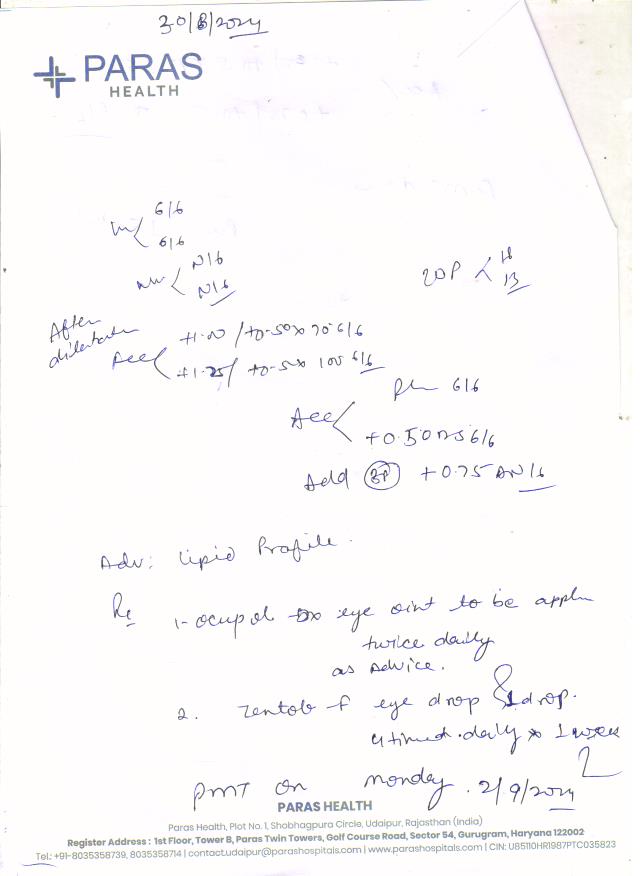 30/8/2024
PARAS
HEALTH
6/6
6/6
N/6
N/6
IOP 18
13
After
dilatation
Acc +1.00 / +0.50 x 70° 6/6
+1.25 / +0.50 x 100 6/6
Acc Pl 6/6
+0.50 DS 6/6
Add BP +0.75 N/6
Adv: Lipid Profile.
Rx
1- ocupol Dx eye oint to be apply
twice daily
as Advice.
2. Zentob f eye drop 1 drop.
4 times daily x 1 week
PMT on monday. 2/9/2024
PARAS HEALTH
Paras Health, Plot No. 1, Shobhagpura Circle, Udaipur, Rajasthan (India)
Register Address : 1st Floor, Tower B, Paras Twin Towers, Golf Course Road, Sector 54, Gurugram, Haryana 122002
Tel.: +91-8035358739, 8035358714 | contact.udaipur@parashospitals.com | www.parashospitals.com | CIN: U85110HR1987PTC035823